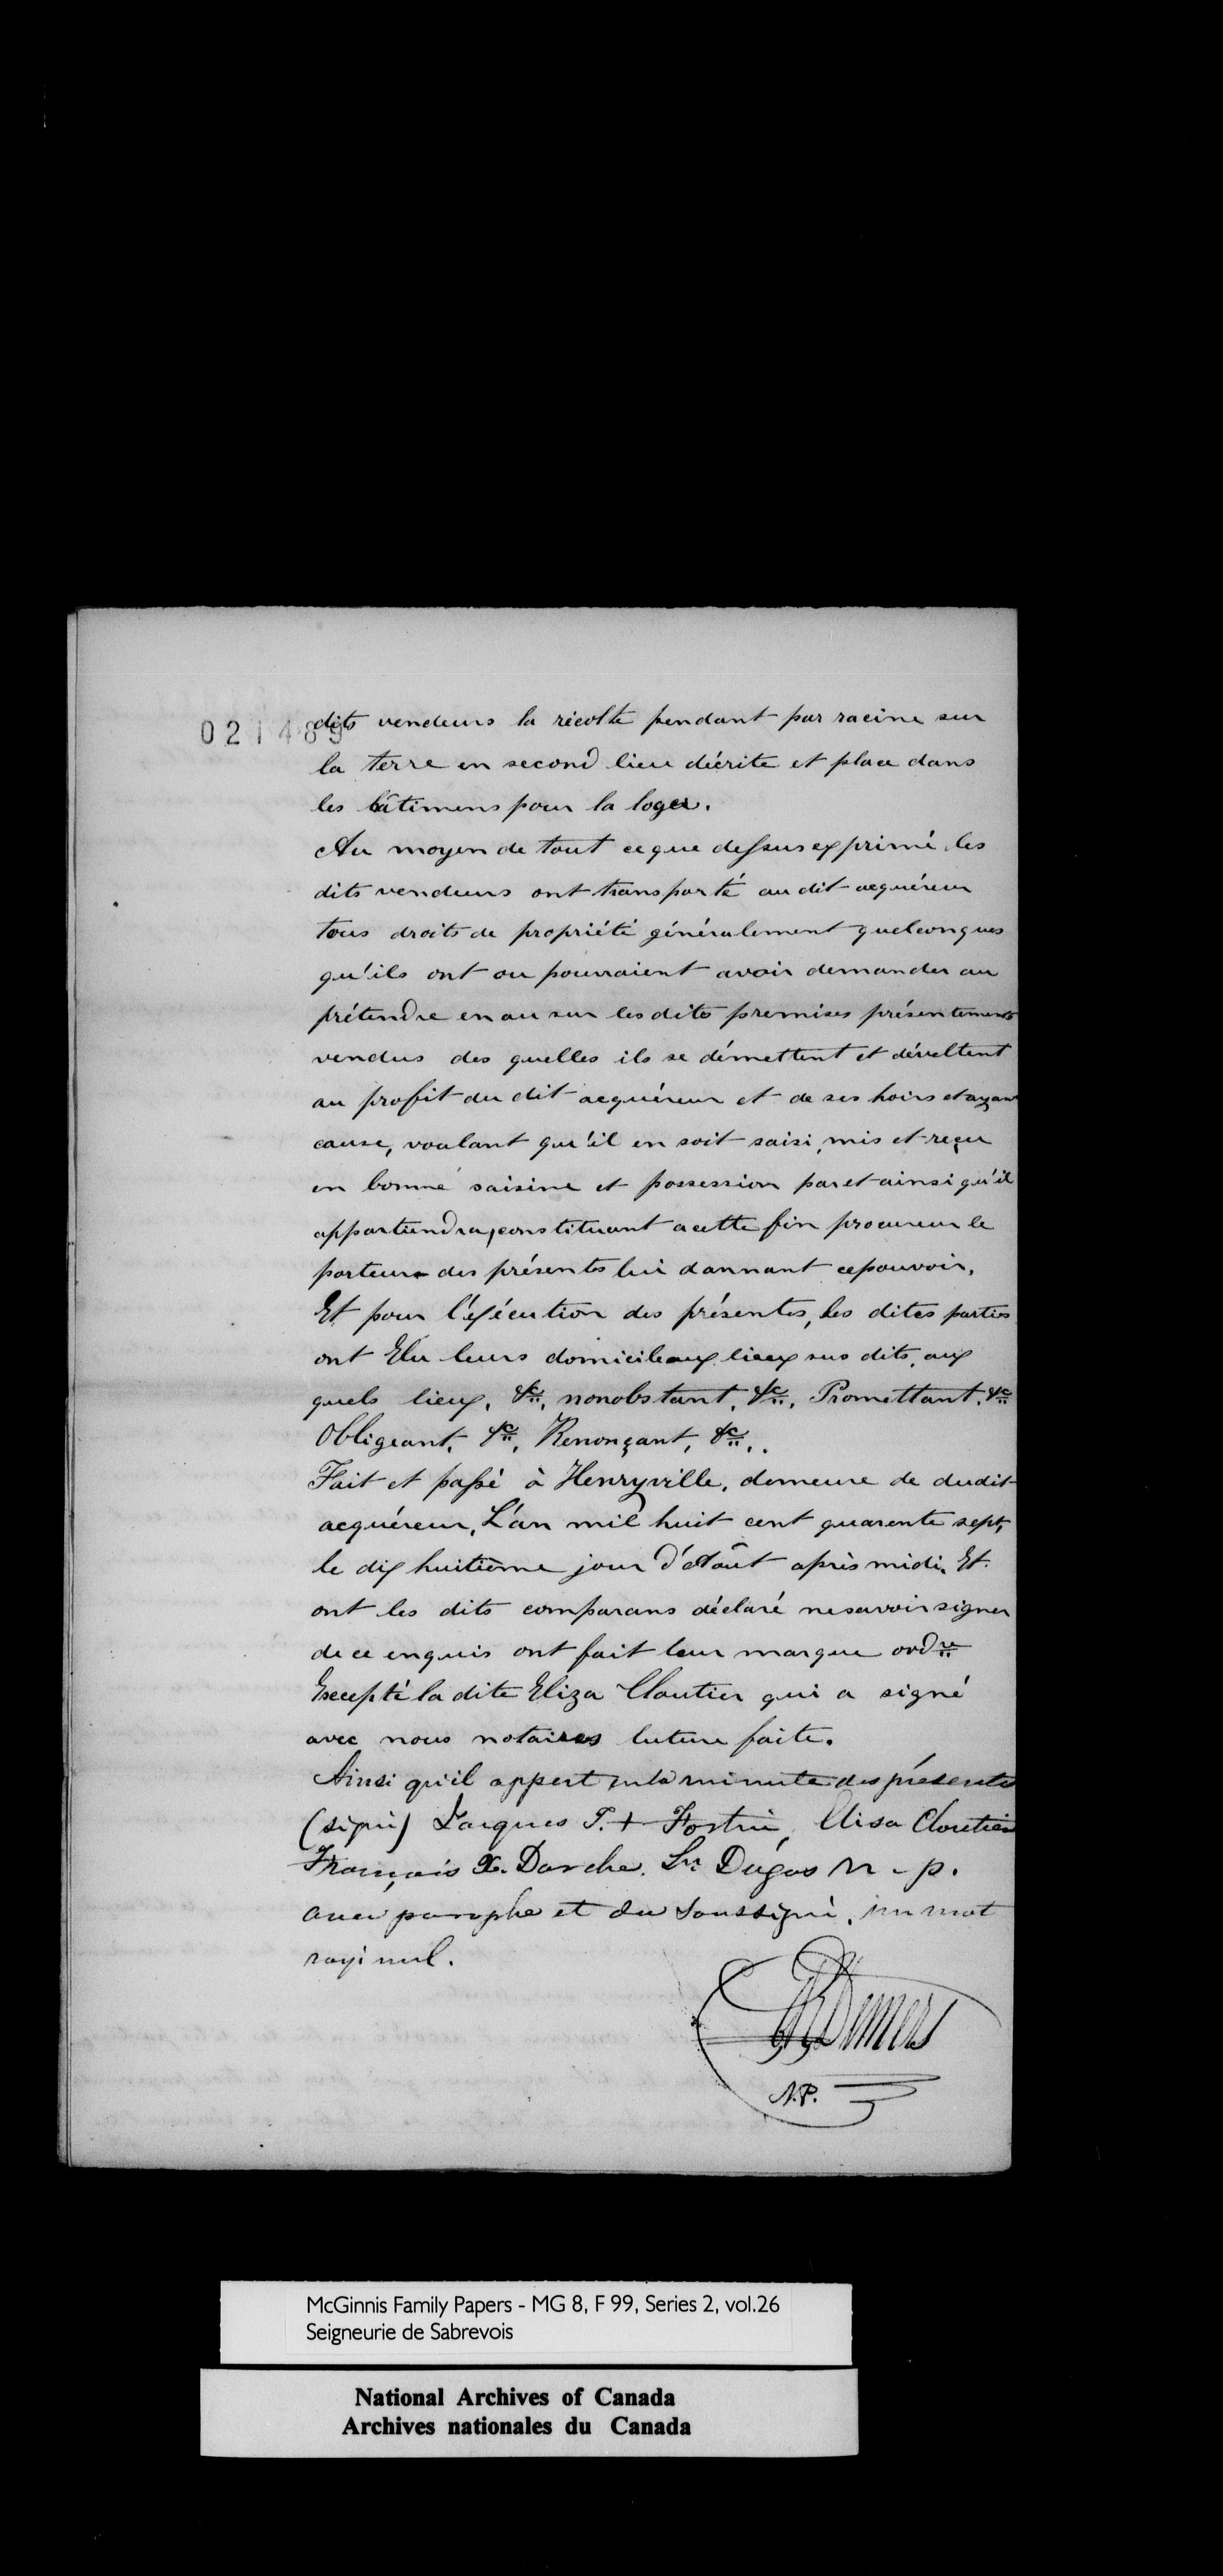 021489
dits vendeurs la récolte pendant par racine sur
la terre en second lieu décrite et place dans
les bâtimens pour la loger.
Au moyen de tout ceque dessus exprimé les
dits vendeurs ont transporté au dit acquéreur
tous droits de propriété généralement quelconques
qu'ils ont ou pourraient avoir demander ou
prétendre en ou sur les dites premises présentements
vendus des quelles ils se démettent et dévettent
au profit du dit acquéreur et de ses hoirs et ayant
cause, voulant qu'il en soit saisi, mis et reçu
en bonne saisine et possession par et ainsi qu'il
appartiendra, constituant a cette fin procureur le
porteur des présentes lui donnant ce pouvoir.
Et pour l'éxécution des présentes, les dites parties
ont Elu leurs domicile aux lieux sus dits, aux
quels lieux, &c, nonobstant, &c, Promettant, &c
Obligeant, &c, Renonçant, &c.
Fait et passé à Henryville, demeure de dudit
acquéreur, L'an mil huit cent quarente sept,
le dix huitième jour d'Août après midi. Et
ont les dits comparans déclaré ne savoir signer
de ce enquis ont fait leur marque ordre
Excepté la dite Eliza Cloutier qui a signé
avec nous notaires lecture faite.
Ainsi qu'il appert en la minute des présentes
(signé) Jacques T. + Fortin, Elisa Cloutier
François X. Darche. Ls Dugas N - p.
avec paraphe et du Soussigné. un mot
rayé nul.
Demers
N.P.
McGinnis Family Papers - MG 8, F 99, Series 2, vol.26
Seigneurie de Sabrevois
National Archives of Canada
Archives nationales du Canada